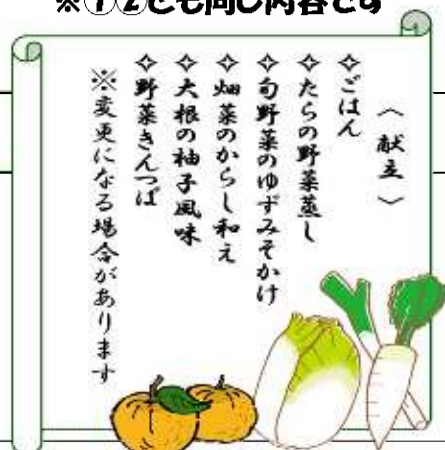 ※①②とも同じ内容です
〈献立〉
✧ごはん
✧たらの野菜蒸し
✧旬野菜のゆずみそかけ
✧畑菜のからし和え
✧大根の柚子風味
✧野菜きんつば
※変更になる場合があります